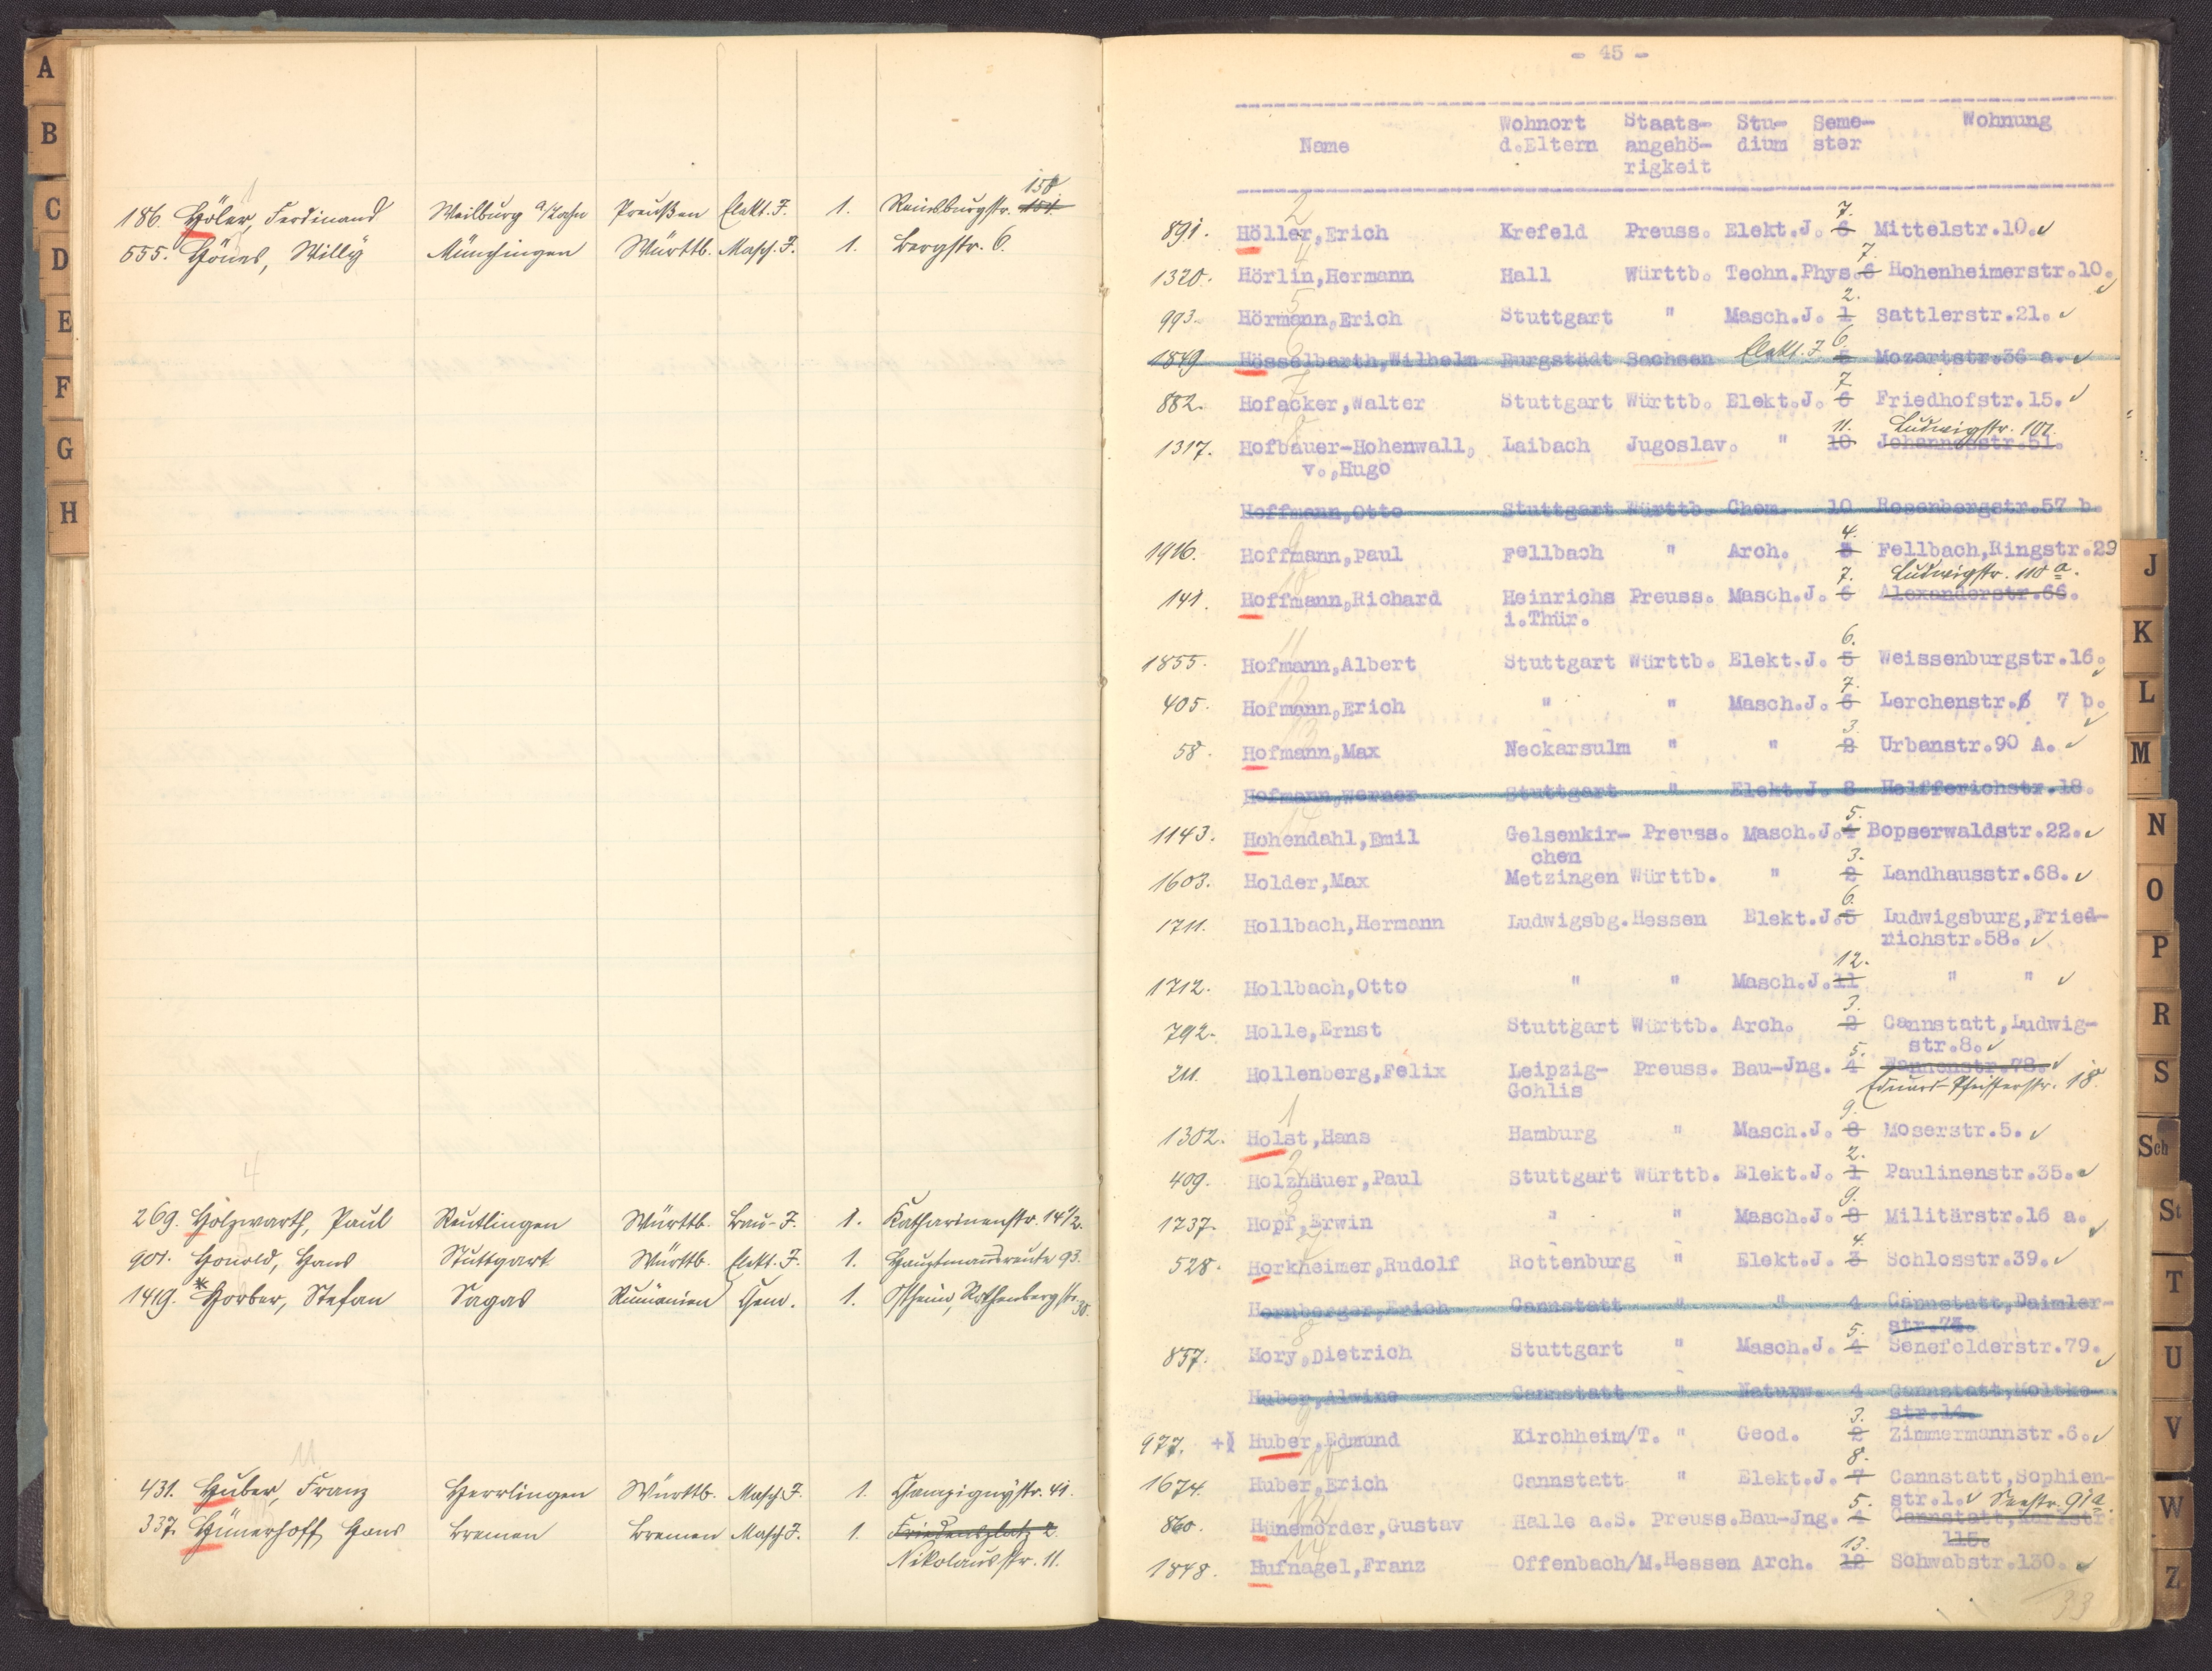 A
B
C
D
E
F
G
H
1
150.
186. Höler, Ferdinand Weilburg a/Lahn Preußen Elekt. J. 1. Reinsburgstr. 151.
555. Hönes, Willy Münsingen Württb. Masch. J. 1. Bergstr. 6.
4
269. Holzwarth, Paul Reutlingen Württb. Bau-J. 1. Katharinenstr. 14 1/2.
901. Honold, Hans Stuttgart Württb. Elekt. J. 1. Hauptmannsreute 93.
1419. * Horber, Stefan Sagas Rumänien Chem. 1. Ostheim, Rothenbergstr. 30.
11
431. Huber, Franz Herrlingen Württb. Masch. J. 1. Champignystr. 41.
337. Hünerhoff, Hans Bremen Bremen Masch. J. 1. Friedensplatz 2.
Nikolausstr. 11.
- 45 -
Name Wohnort d.Eltern Staats- angehö- rigkeit Stu- dium Seme- ster Wohnung
2 7.
891. Höller,Erich Krefeld Preuss. Elekt.J. 6 Mittelstr.10.✓
4 7.
1320. Hörlin,Hermann Hall Württb. Techn.Phys.6 Hohenheimerstr.10.✓
5 2.
993. Hörmann,Erich Stuttgart " Masch.J. 1 Sattlerstr.21.✓
6 6.
1849 Hösselbarth,Wilhelm Burgstädt Sachsen Elekt. J. 5 Mozartstr.36 a.✓
7 7
882. Hofacker,Walter Stuttgart Württb. Elekt.J. 6 Friedhofstr.15.✓
8 11. Ludwigstr. 101.
1317. Hofbauer-Hohenwall, Laibach Jugoslav. " 10 Johannesstr.51.
v.,Hugo
Hoffmann,Otto Stuttgart Württb. Chem. 10 Rosenbergstr.57 b.
9 4.
1916. Hoffmann,Paul Fellbach " Arch. 3 Fellbach,Ringstr.29
10 7. Ludwigstr. 110 a.
141. Hoffmann,Richard Heinrichs Preuss. Masch.J. 6 Alexanderstr.66.
i.Thür.
11 6.
1855. Hofmann,Albert Stuttgart Württb. Elekt.J. 5 Weissenburgstr.16.✓
12 7.
405. Hofmann,Erich " " Masch.J. 6 Lerchenstr.6 7 b.✓
13 3.
58. Hofmann,Max Neckarsulm " " 2 Urbanstr.90 A.✓
Hofmann,Werner Stuttgart " Elekt.J. 8 Helfferichstr.18.
14 5.
1143. Hohendahl,Emil Gelsenkir- Preuss. Masch.J.4 Bopserwaldstr.22.✓
chen 3.
1603. Holder,Max Metzingen Württb. " 2 Landhausstr.68.✓
6.
1711. Hollbach,Hermann Ludwigsbg.Hessen Elekt.J.5 Ludwigsburg,Fried-
richstr.58.✓
12.
1712. Hollbach,Otto " " Masch.J.11 " " ✓
3.
792. Holle,Ernst Stuttgart Württb. Arch. 2 Cannstatt,Ludwig-
5. str.8.✓
211. Hollenberg,Felix Leipzig- Preuss. Bau-Jng. 4 Tannenstr.78.✓
Gohlis Eduard-Pfeifferstr. 18.
1 9.
1302. Holst,Hans Hamburg " Masch.J. 8 Moserstr.5.✓
2 2.
409. Holzhäuer,Paul Stuttgart Württb. Elekt.J. 1 Paulinenstr.35.✓
3 9.
1237. Hopf,Erwin " " Masch.J. 8 Militärstr.16 a.✓
7 4.
528. Horkheimer,Rudolf Rottenburg " Elekt.J. 3 Schlosstr.39.✓
Hornberger,Erich Cannstatt " " 4 Cannstatt,Daimler-
str.73.
8 5.
857. Hory,Dietrich Stuttgart " Masch.J. 4 Senefelderstr.79.✓
Huber,Alwine Cannstatt " Naturw. 4 Cannstatt,Moltke-
str.14.
9 3.
977. + Huber,Edmund Kirchheim/T. " Geod. 2 Zimmermannstr.6.✓
10 8.
1674. Huber,Erich Cannstatt " Elekt.J. 7 Cannstatt,Sophien-
12 5. str.1.✓ Seestr. 91a.
860. Hünemörder,Gustav Halle a.S. Preuss.Bau-Jng. 4 Cannstatt,Karlstr
14 13. 115.
1848. Hufnagel,Franz Offenbach/M.Hessen Arch. 12 Schwabstr.130.✓
33
J
K
L
M
N
O
P
R
S
Sch
St
T
U
V
W
Z